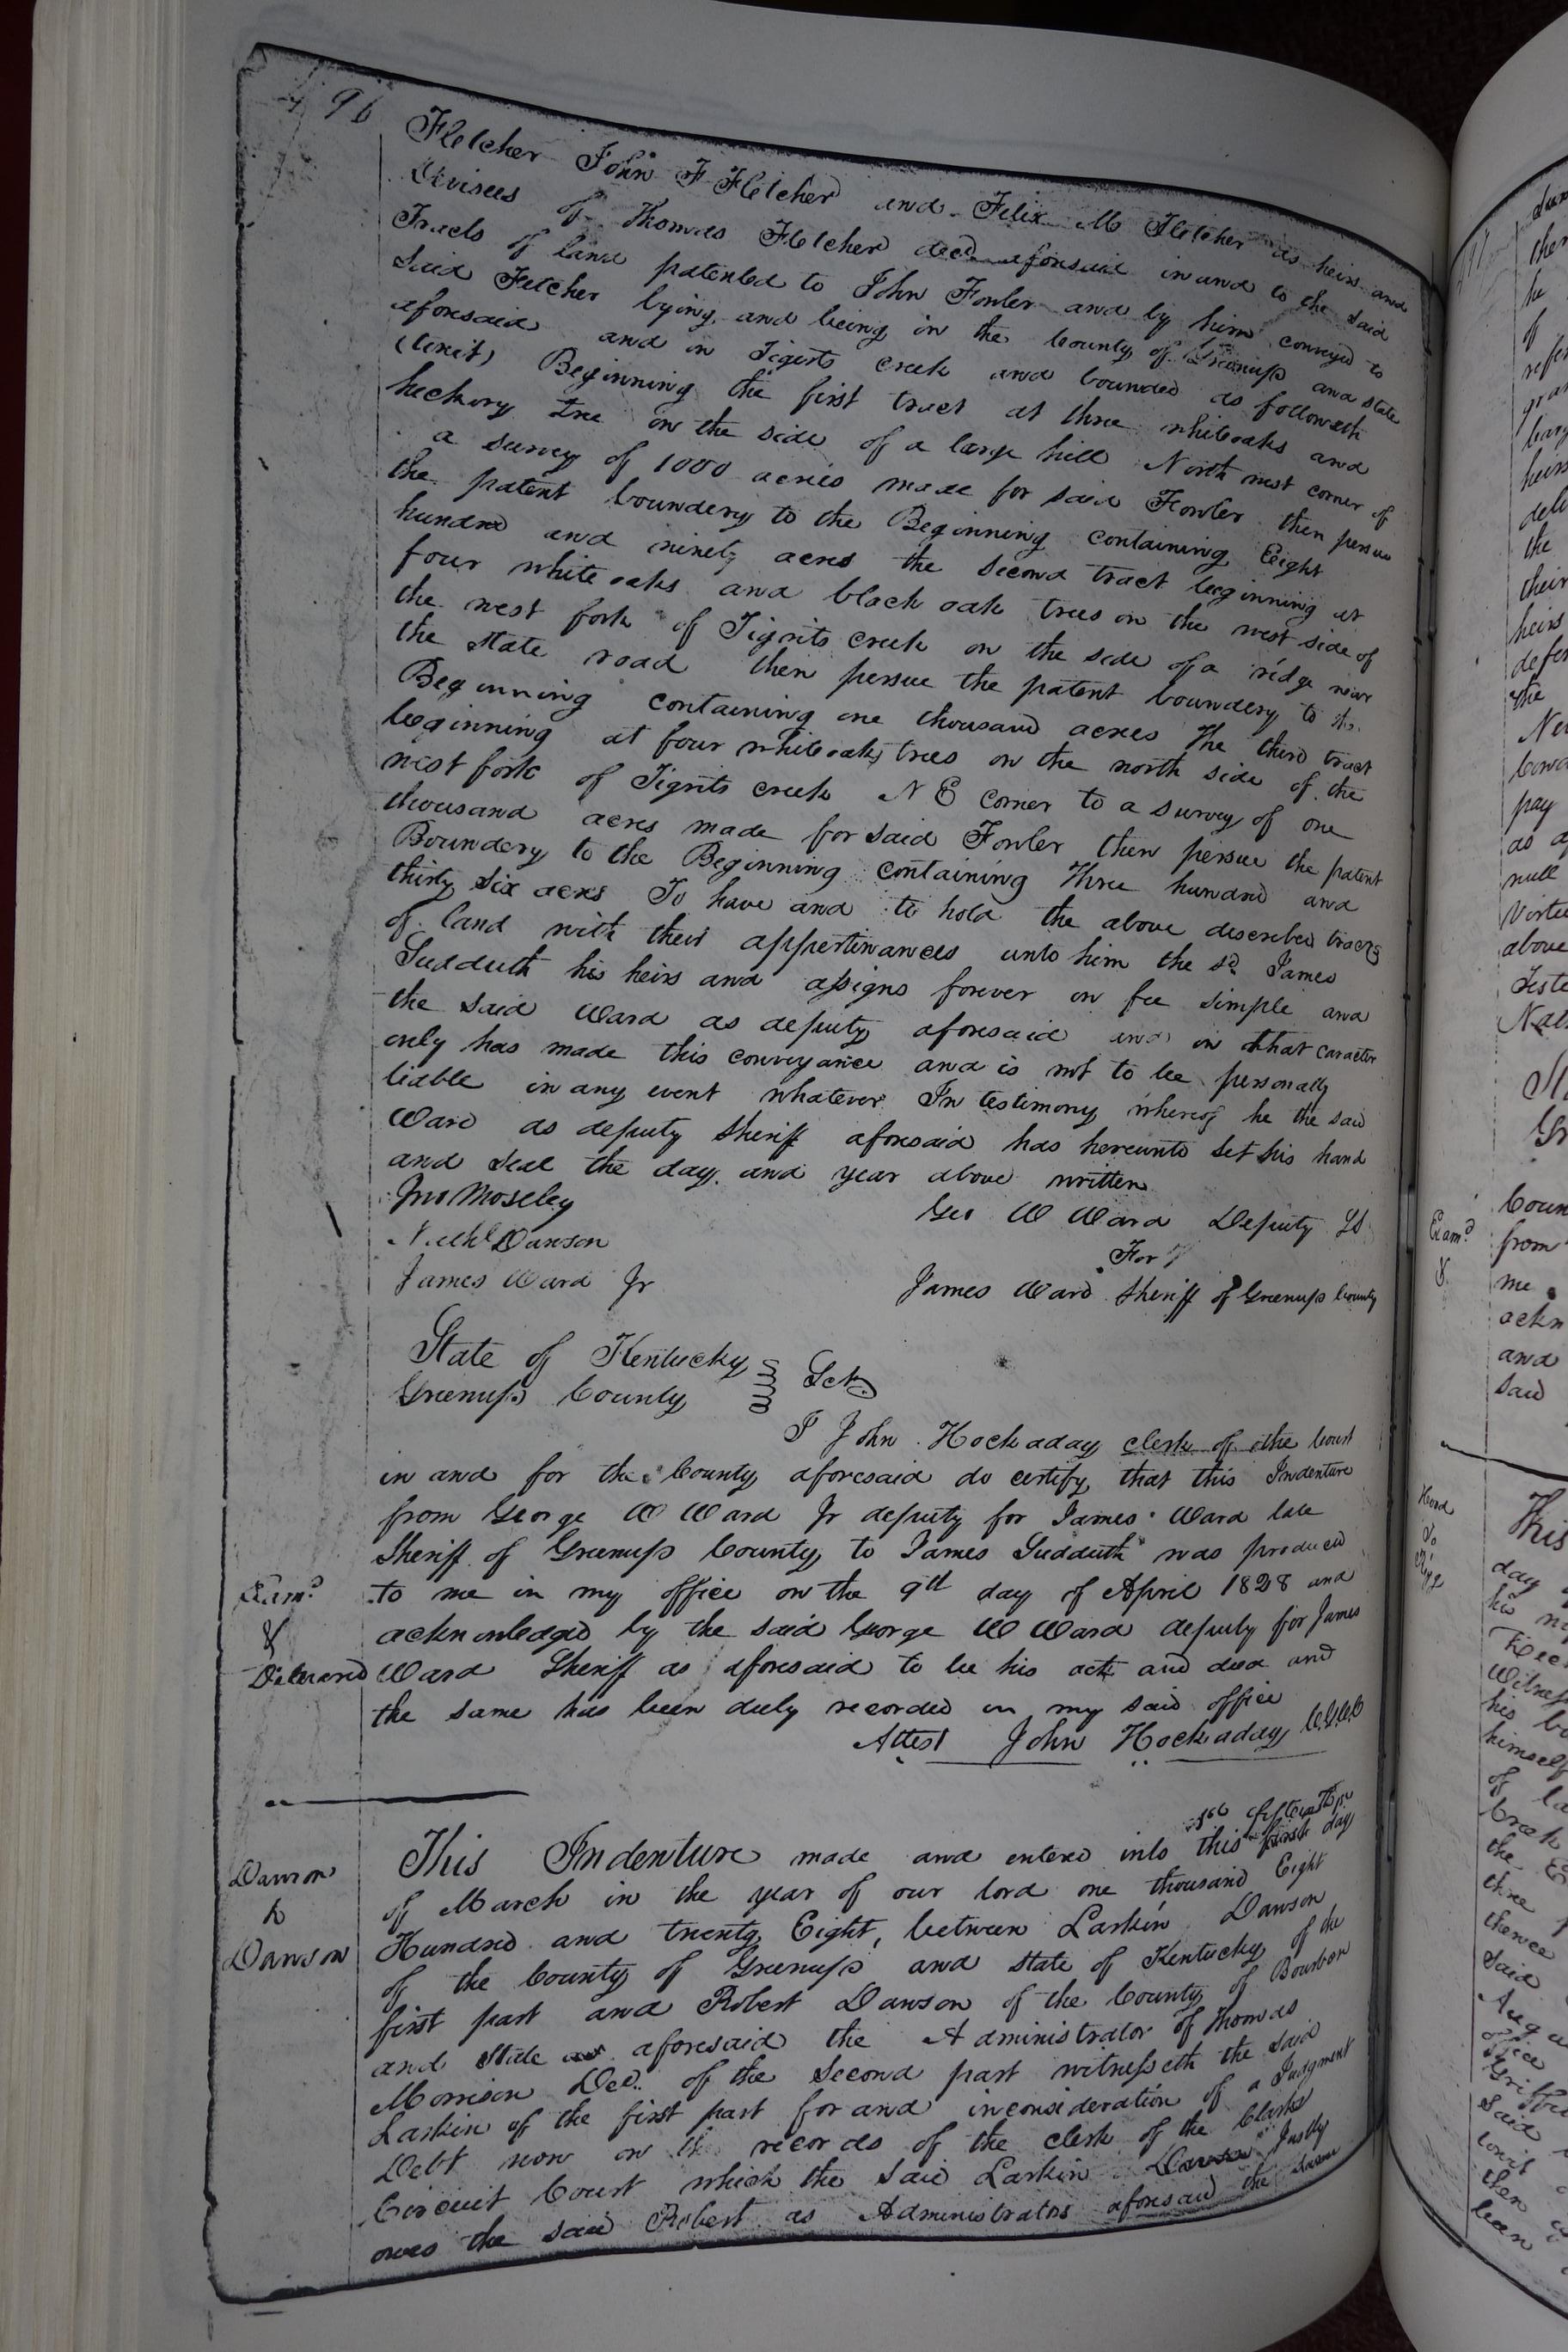 496
Fletcher John F Fletcher and Felix M Fletcher as heirs and
Devisees of Thomas Fletcher decd aforesaid in and to the said
Tracts of land patented to John Fowler and by him conveyed to
said Fletcher lying and being in the County of Greenup and state
aforesaid and on Tigerts creek and bounded as followeth
(towit) Beginning the first tract at three whiteoaks and
heckory tree on the side of a large hill North west corner of
a survey of 1000 acres made for said Fowler then persue
the patent boundery to the Beginning containing Eight
hundred and ninety acres the second tract beginning at
four white oaks and black oak trees on the west side of
the west fork of Tigrits creek on the side of a ridge near
the state road then persue the patent boundery to the
Beginning containing one thousand acres The third tract
beginning at four whiteoaks trees on the north side of the
west fork of Tigrits creek N E corner to a survey of one
thousand acres made for said Fowler then persue the patent
Boundery to the Beginning containing Three hundred and
thirty six acres To have and to hold the above described tracts
of land with their appertinances unto him the sd James
Sudduth his heirs and assigns forever in fee simple and
the said Ward as deputy aforesaid and in that caracter
only has made this conveyance and is not to be personally
liable in any event whatever In testimony whereof he the said
Ward as deputy sheriff aforesaid has hereunto set his hand
and seal the day and year above written
Jno Moseley
Geo W Ward Deputy LS
Nathl Dawson
For
James Ward Jr
James Ward Sheriff of Greenup County
State of Kentucky
Greenup County Sct
I John Hockaday clerk of the Court
in and for the County aforesaid do certify that this Indenture
from George W Ward Jr deputy for James Ward late
Sheriff of Greenup County to James Sudduth was produced
to me in my office on the 9th day of April 1828 and
acknowledged by the said George W Ward deputy for James
Ward Sheriff as aforesaid to be his act and deed and
the same has been duly recorded in my said office
Attest John Hockaday C.G.C.C
Exam.d
&
Delivered
Dawson
to
Dawson
This Indenture made and entered into this day
of March in the year of our lord one thousand Eight
Hundred and twenty Eight, between Larkin Dawson
of the County of Greenup and state of Kentucky of the
first part and Robert Dawson of the County of Bourbon
and state aforesaid the Administrator of Thomas
Morrison Decd. of the second part witnesseth the said
Larkin of the first part for and inconsideration of a Judgment
Debt now on the records of the clerk of the Clarke
Circuit Court which the said Larkin Dawson Justly
owes the said Robert as Administrator aforesaid the same
Exam.d
&